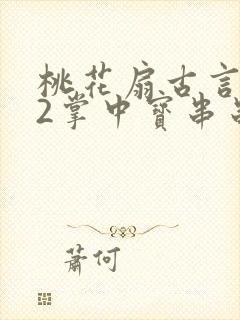 桃花扇古言
2掌中寶串
蕭何